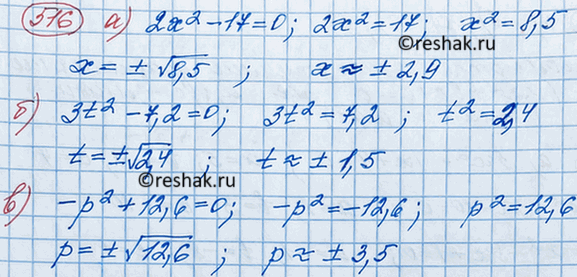 516 а) 2x² - 17 = 0; 2x² = 17; x² = 8,5
©reshak.ru
x = ± √8,5 ; x ≈ ± 2,9
б) 3t² - 7,2 = 0; 3t² = 7,2 ; t² = 2,4
t = ±√2,4 ; t ≈ ± 1,5
©reshak.ru
в) -p² + 12,6 = 0; -p² = -12,6; p² = 12,6
p = ± √12,6 ; p ≈ ± 3,5